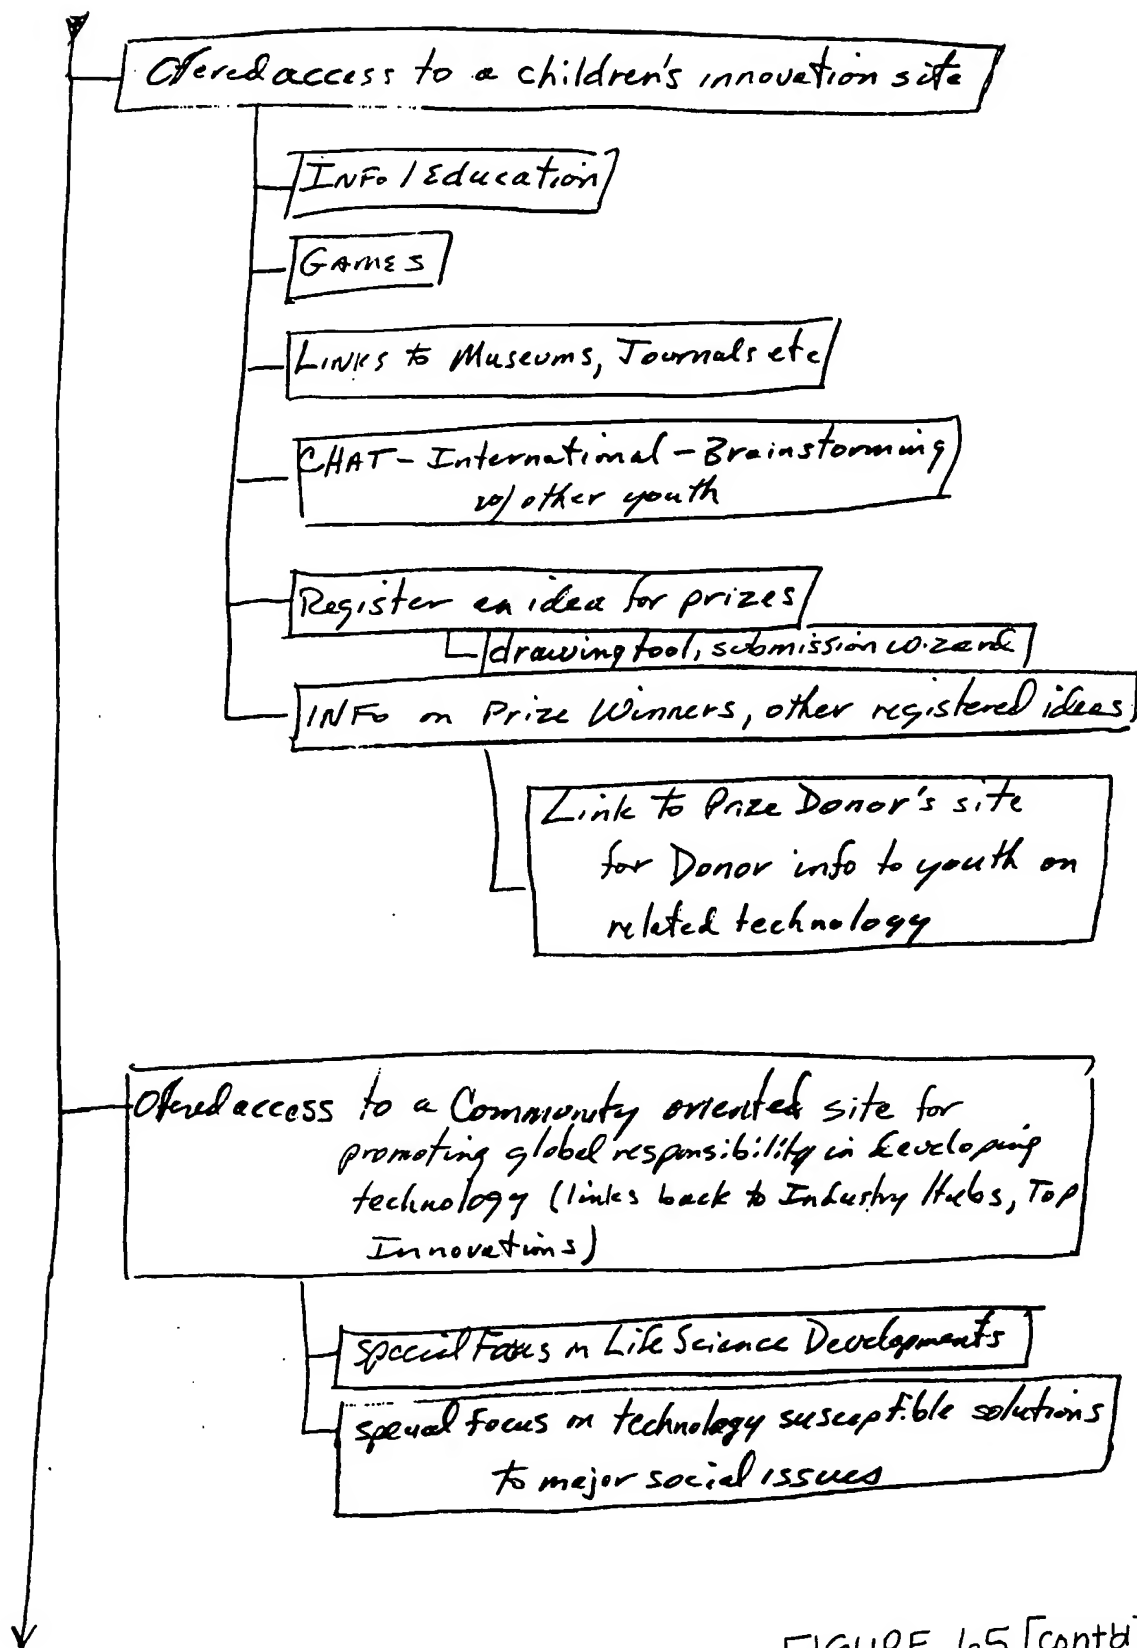 Offered access to a children's innovation site
INFO / Education
GAMES
LINKS to Museums, Journals etc
CHAT - International - Brainstorming
w/ other youth
Register an idea for prizes
drawing tool, submission wizard
INFO on Prize Winners, other registered ideas
Link to Prize Donor's site
for Donor info to youth on
related technology
Offered access to a Community oriented site for
promoting global responsibility in developing
technology (links back to Industry Hubs, Top
Innovations)
special Focus on Life Science Developments
special focus on technology susceptible solutions
to major social issues
FIGURE 65 [contd